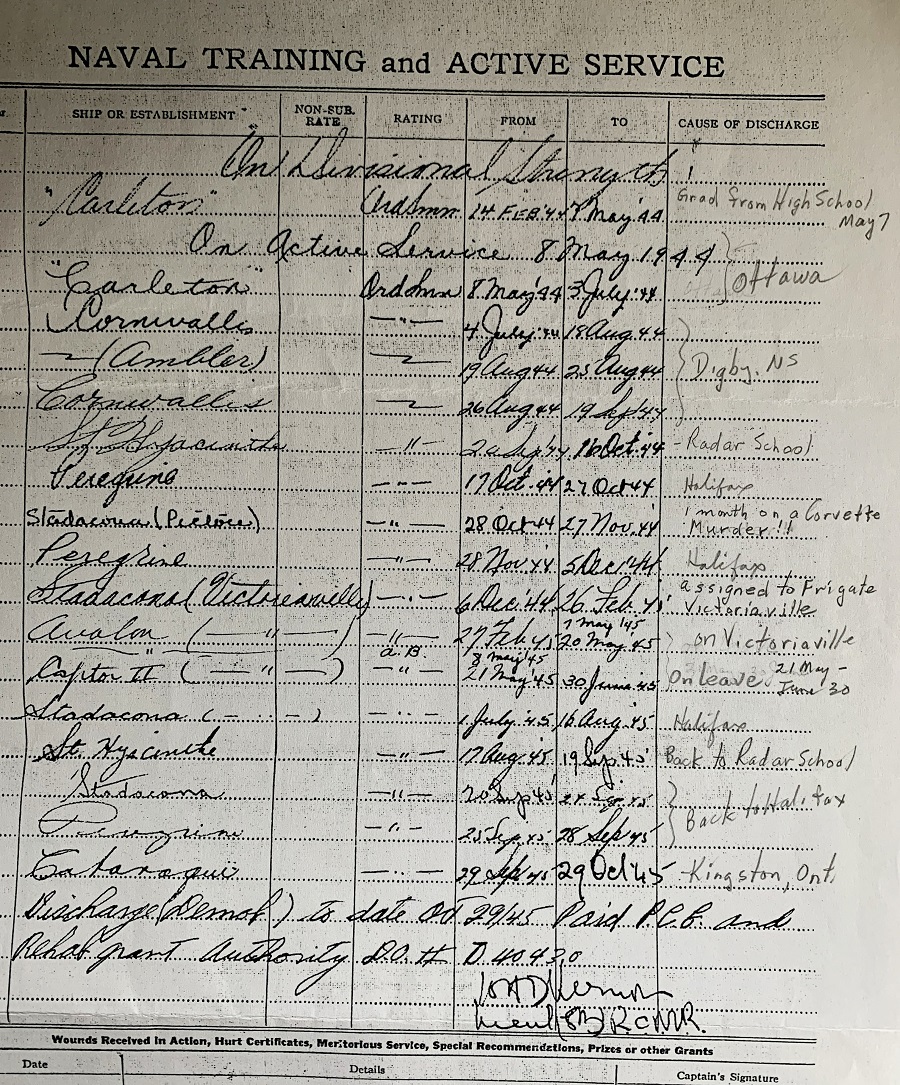 NAVAL TRAINING and ACTIVE SERVICE
SHIP OR ESTABLISHMENT NON-SUB. RATE RATING FROM TO CAUSE OF DISCHARGE
On Divisional Strength
"Carleton" Ord Smn 14 FEB '44 7 May '44 Grad from High School May 7
On Active Service 8 May 1944
"Carleton" Ord Smn 8 May '44 3 July '44 Ottawa
Cornwallis — " — 4 July '44 18 Aug 44
(Ambler) 19 Aug 44 25 Aug 44 Digby, NS
Cornwallis 26 Aug 44 19 Sep '44
St. Hyacinthe — " — 20 Sep '44 16 Oct '44 - Radar School
Peregrine — " — 17 Oct '44 27 Oct 44 Halifax
Stadacona (Pictou) — " — 28 Oct 44 27 Nov '44 1 month on a Corvette Murder!!
Peregrine — " — 28 Nov '44 5 Dec '44 Halifax
Stadacona (Victoriaville) — " — 6 Dec '44 26 Feb 45 assigned to Frigate Victoriaville
7 May '45
Avalon ( — " — ) — " — 27 Feb 45 20 May '45 on Victoriaville
— " — A.B. 8 May '45
Captor II ( — " — ) — " — 21 May '45 30 June '45 On leave 21 May - June 30
Stadacona ( — " — ) — " — 1 July '45 16 Aug '45 Halifax
St. Hyacinthe — " — 17 Aug '45 19 Sep 45 Back to Radar School
Stadacona — " — 20 Sep 45 24 Sep 45
Back to Halifax
Peregrine — " — 25 Sep 45 28 Sep 45
Cataraqui — " — 29 Sep 45 29 Oct '45 - Kingston, Ont.
Discharge (Demob) to date Oct 29/45 Paid P.C.B. and
Rehab grant Authority D.O.H. D 40430
R.C.N.V.R.
Wounds Received in Action, Hurt Certificates, Meritorious Service, Special Recommendations, Prizes or other Grants
Date Details Captain's Signature